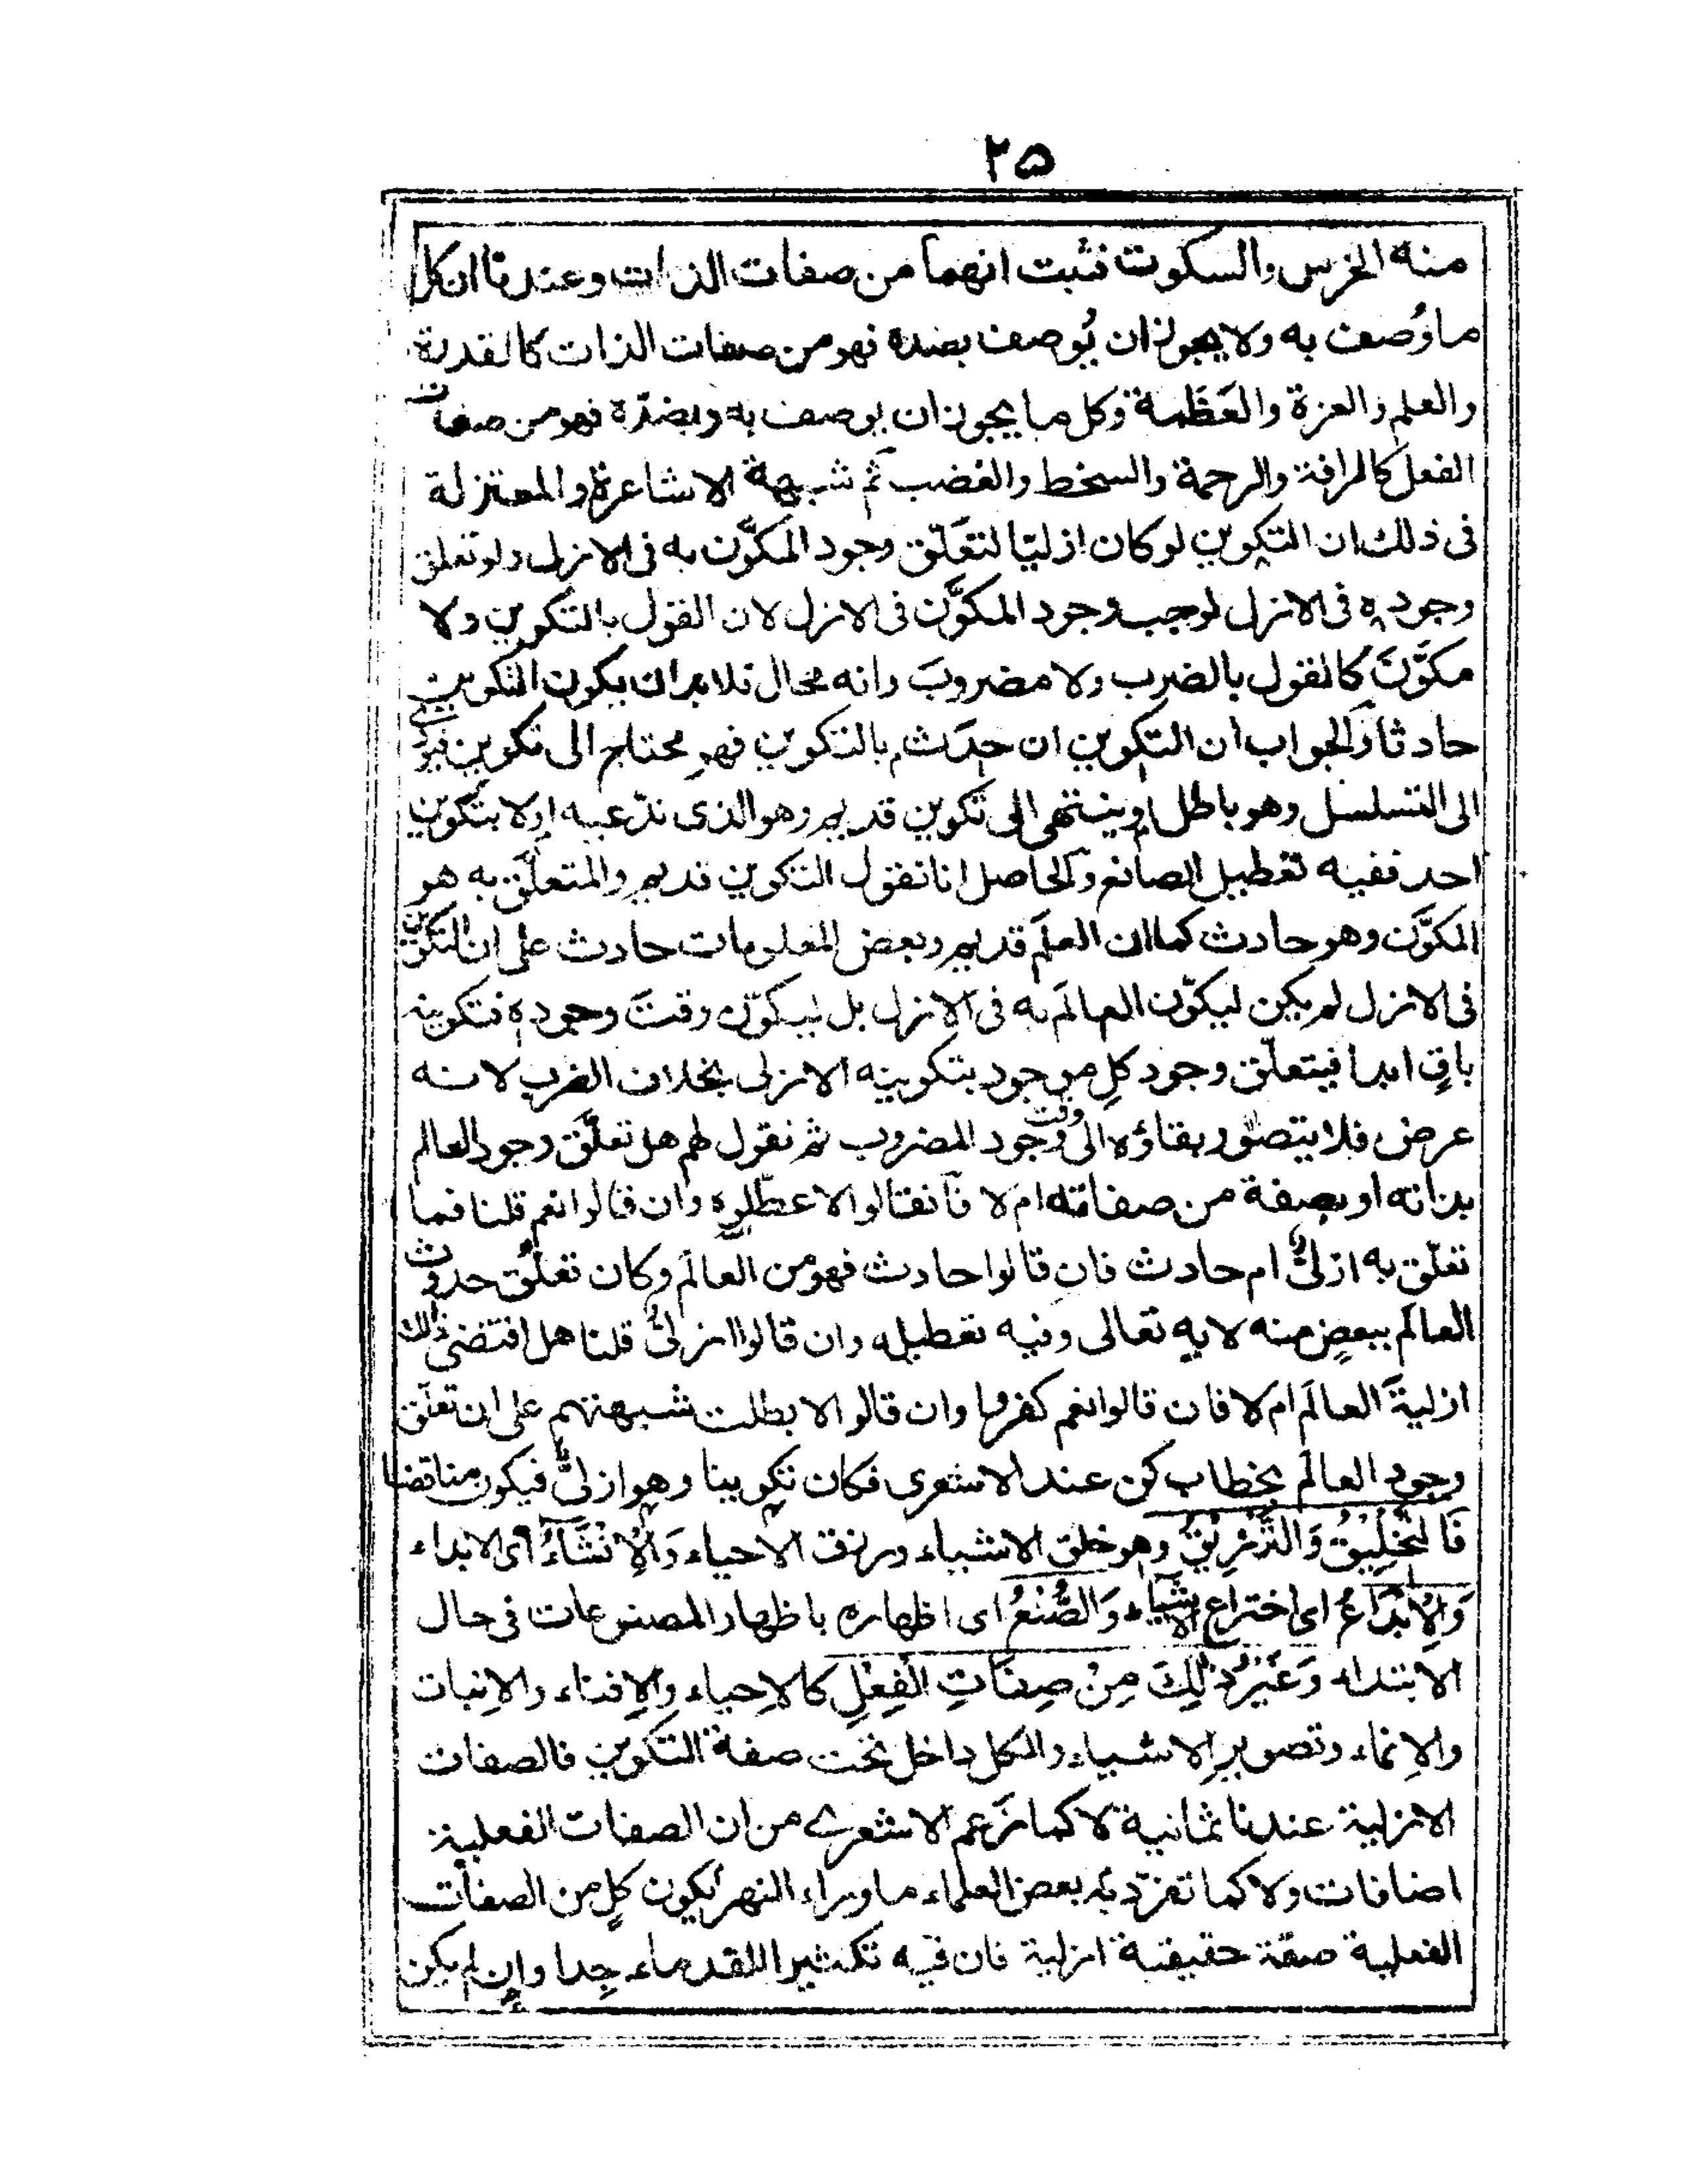 ٢٥
منه الخرس والسكوت فثبت انهما من صفات الذات وعندنا ان كل
ما وُصف به ولا يجوز ان يُوصف بضده فهو من صفات الذات كالقدرة
والعلم والعزة والعَظَمة وكل ما يجوز ان يوصف به وبضدّه فهو من صفات
الفعل كالرافة والرحمة والسخط والغضب ثم شبهة الاشاعرة والمعتزلة
فى ذلك ان التكوين لو كان ازليّا لتعلّق وجود المكوَّن به فى الازل ولو تعلق
وجوده فى الازل لوجب وجود المكوَّن فى الازل لان القول بالتكوين ولا
مكوَّنَ كالقول بالضرب ولا مضروبَ وانه محال فلا بد ان يكون التكوين
حادثا والجواب ان التكوين ان حدَث بالتكوين فهو محتاج الى تكوين فيؤدى
الى التسلسل وهو باطل او ينتهى الى تكوين قديم وهو الذى ندّعيه او لا بتكوين
احد ففيه تعطيل الصانع والحاصل انا نقول التكوين قديم والمتعلَّق به هو
المكوَّن وهو حادث كما ان العلم قديم وبعض المعلومات حادث على ان التكوين
فى الازل لم يكن ليكوّن العالَم به فى الازل بل ليكوّن وقتَ وجوده فتكوينه
باقٍ ابدا فيتعلّق وجود كلِ موجود بتكوينه الازلى بخلاف الضرب لانه
عرض فلا يتصور بقاؤه الى وقت وجود المضروب ثم نقول لهم هل تعلَّق وجود العالم
بذاته او بصفة من صفاته ام لا فان قالوا لا عطّلوه وان قالوا نعم قلنا فما
تعلّق به ازلىٌّ ام حادث فان قالوا حادث فهو من العالَم وكان تعلُّق حدوث
العالَم ببعضٍ منه لا به تعالى وفيه تعطيله وان قالوا ازلىٌّ قلنا هل اقتضى ذلك
ازليةَ العالَم ام لا فان قالوا نعم كفروا وان قالوا لا بطلت شبهتهم على ان تعلّق
وجود العالَم بخطاب كن عند الاشعرى فكان تكوينا وهو ازلىٌّ فيكون مناقضا
فَالتَّخْلِيْقُ وَالتَّرْزِيْقُ وهو خلق الاشياء ورزق الاحياء وَالْاِنْشَاءُ اى الابداء
وَالْاِبْدَاعُ اى اختراع الاشياء وَالصُّنْعُ اى اظهاره باظهار المصنوعات فى حال
الابتداء وَغَيْرُ ذٰلِكَ مِنْ صِفَاتِ الْفِعْلِ كالاِحياء والاِفناء والاِنبات
والاِنماء وتصوير الاشياء والكل داخل تحت صفة التكوين فالصفات
الازلية عندنا ثمانية لا كما زعم الاشعرى من ان الصفات الفعلية
اضافات ولا كما تفرّد به بعض العلماء ما وراء النهر بكون كلٍ من الصفات
الفعلية صفة حقيقية ازلية فان فيه تكثيرا للقدماء جدا وان لم يكن